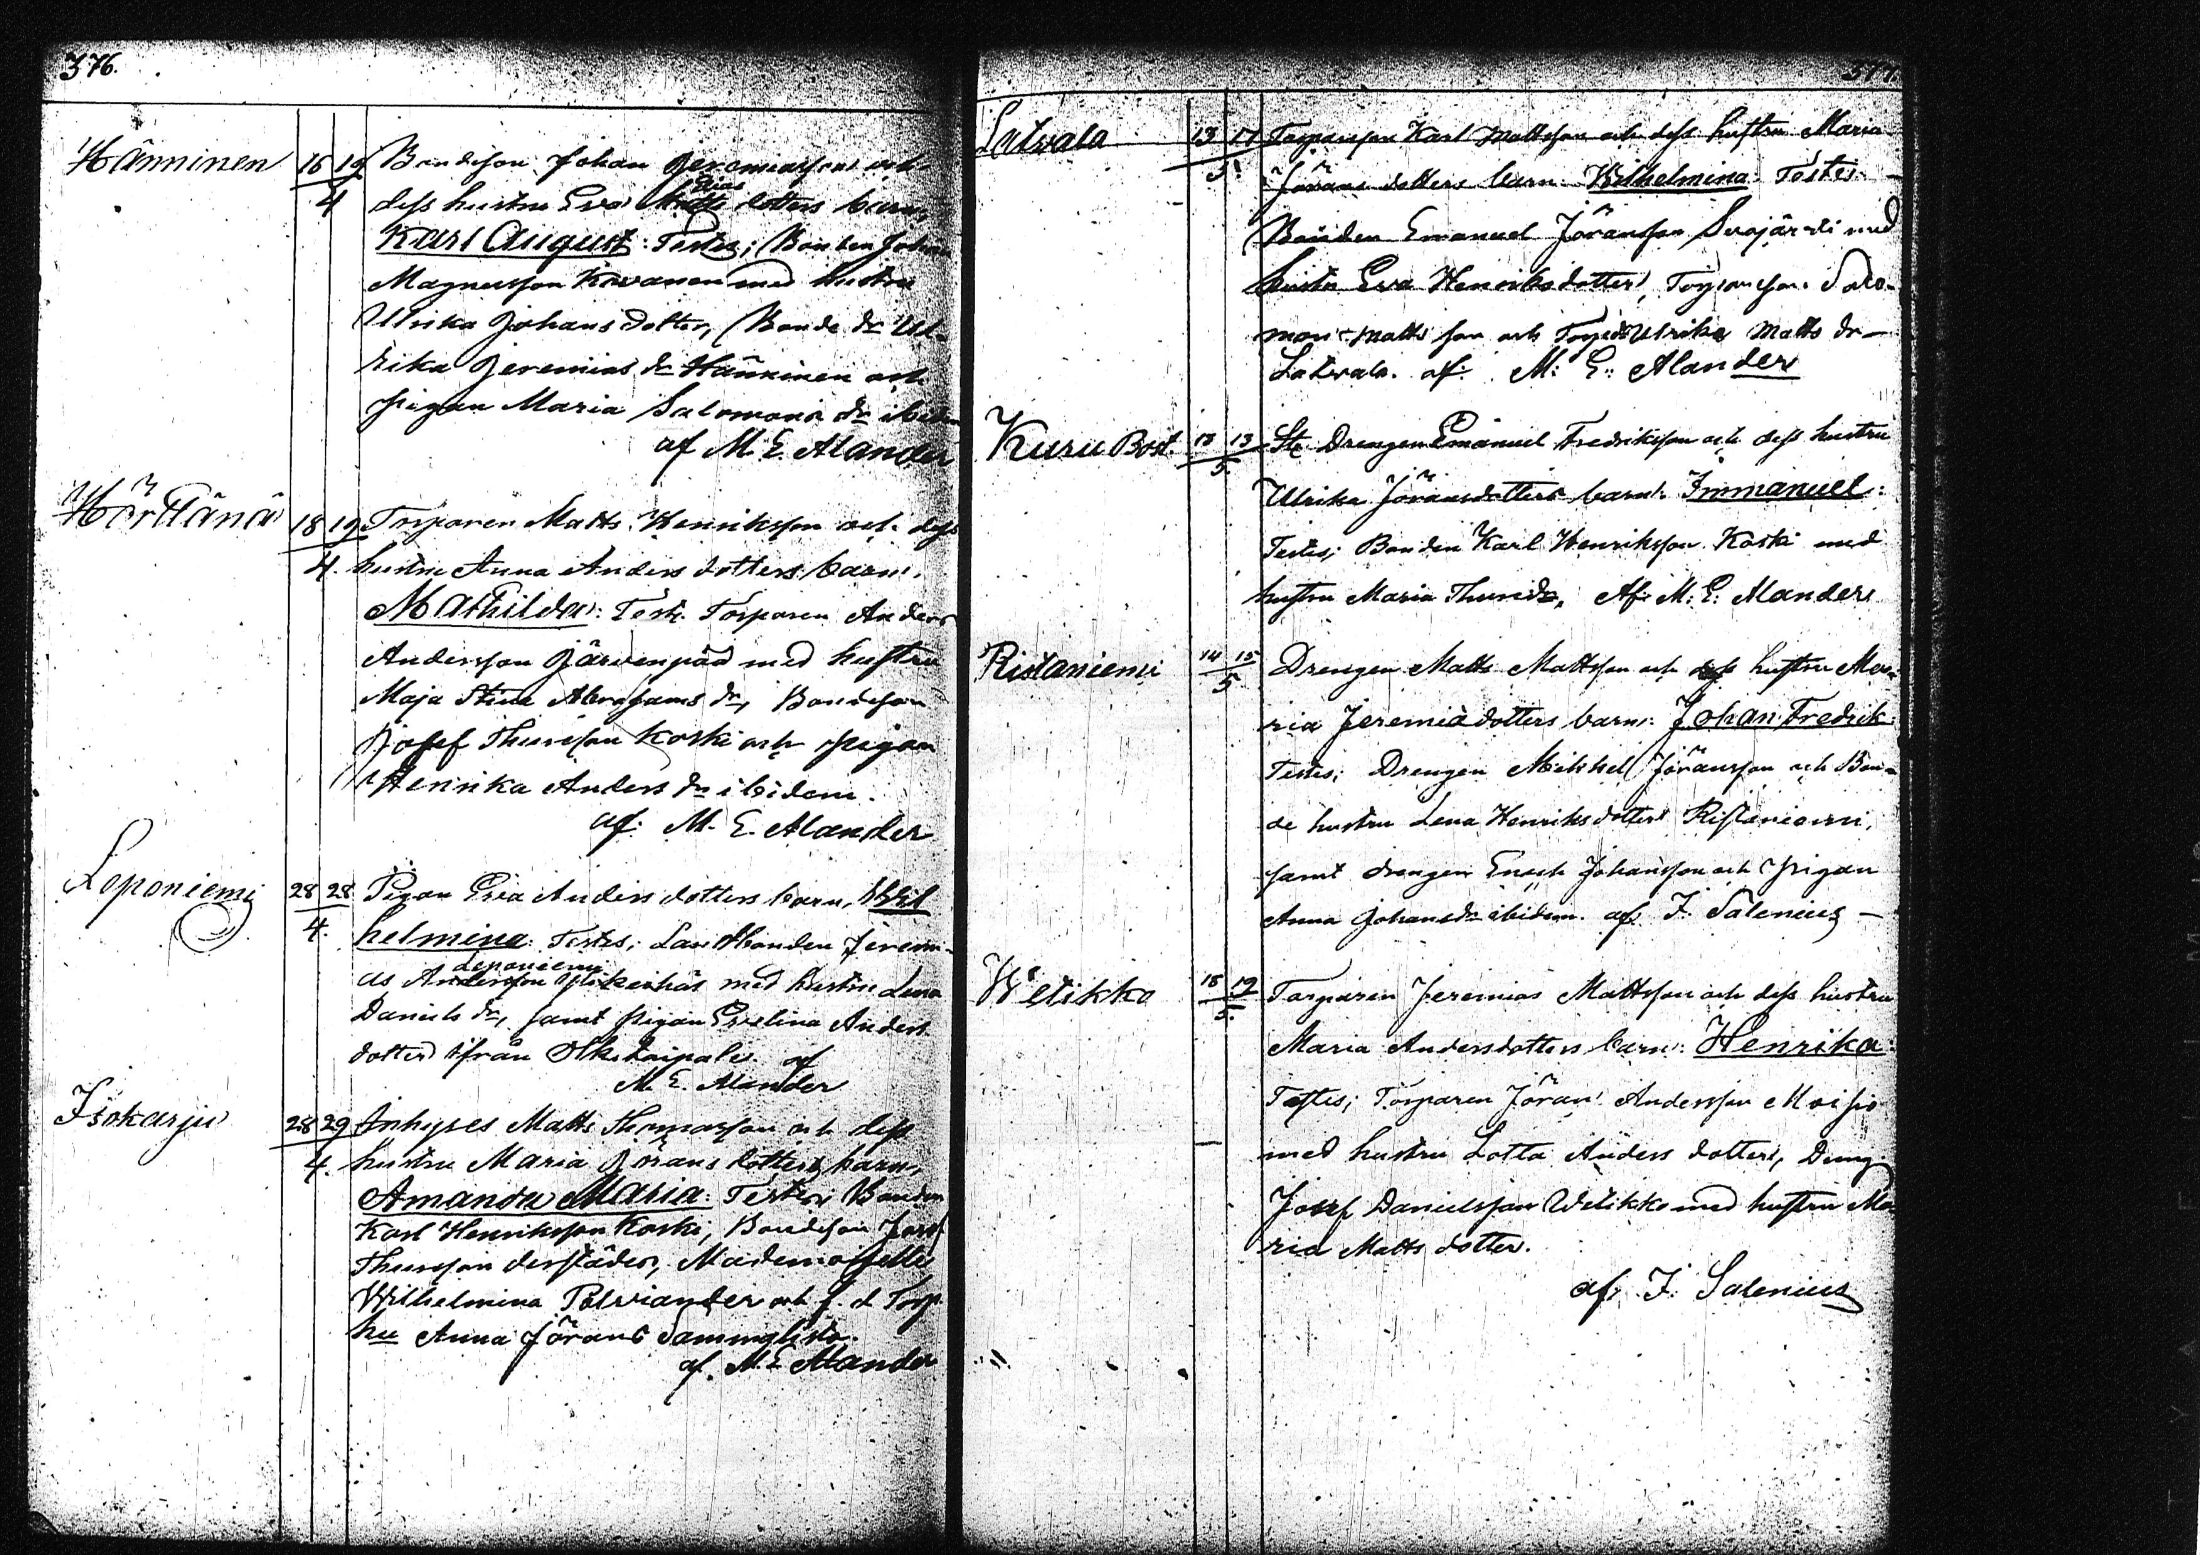 376.
Hänninen 16 19 Bondeson Johan Jeremiasson och
4 dess hustru Eva Elias dotters barn,
Karl August: Testes; Bonden Johan
Magnusson Kovanen med hustru
Ulrika Johans dotter, Bonde dr Ul-
rika Jeremias dr Hänninen och
pigan Maria Salomons dr ibidem
af M. E. Alander
Hörttänä 18 19 Torparen Matts Henriksson och dess
4. hustru Anna Anders dotters barn.
Mathilda: Test. Torparen Anders
Andersson Järvenpää med hustru
Maja Stina Abrahams dr, Bondeson
Josef Thureson Koski och pigan
Henrika Anders dr ibidem.
af: M. E. Alander
Loponiemi 28 28 Pigan Eva Anders dotters barn, Wil
4. helmina: Testes; Landbonden Jeremi-
Loponiemi
as Andersson med hustru Lena
Daniels dr, samt pigan Evelina Anders
dotter ifrån Olkitaipale. af
M. E. Alander
Isokarju 28 29 Inhyses Matts Thomasson och dess
4. hustru Maria Jörans dotters barn,
Amanda Maria: Testes Bonden
Karl Henriksson Koski, Bondeson Josef
Thuresson derstädes, Mademoiselle
Wilhelmina Polviander och f. d Torp.
hu Anna Jörans Sammalisto.
af. M. E. Alander
377.
Latvala 13 17 Torpareson Karl Mattsson och dess hustru Maria
5. Jörans dotters barn: Wilhelmina: Testes:
Bonden Emanuel Jöransson Suojärvi med
hustru Eva Henriksdotter, Torpareson Salo-
mon Matts son och Torp.dr Ulrika Matts dr
Latvala. af: M: E: Alander
Kuru Bost. 13 13 St. Drengen Emanuel Fredriksson och dess hustru
5. Ulrika Jöransdotters barn: Immanuel:
Testes; Bonden Karl Henriksson Koski med
hustru Maria Thure dr, Af: M: E: Alander
Ristaniemi 14 15 Drengen Matts Mattsson och dess hustru Ma-
5 ria Jeremiædotters barn: Johan Fredrik:
Testes; Drengen Mikkel Jöransson och Bon-
de hustru Lena Henriksdotter Ristaniemi,
samt drengen Enoch Johansson och pigan
Anna Johansdr ibidem. af: F. Salenius
Wetikko 18 19 Torparen Jeremias Mattsson och dess hustru
5. Maria Andersdotters barn: Henrika:
Testes; Torparen Jöran Andersson Moisio
med hustru Lotta Anders dotter, Dreng.
Josef Danielsson Wetikko med hustru Ma
ria Matts dotter.
af: F. Salenius